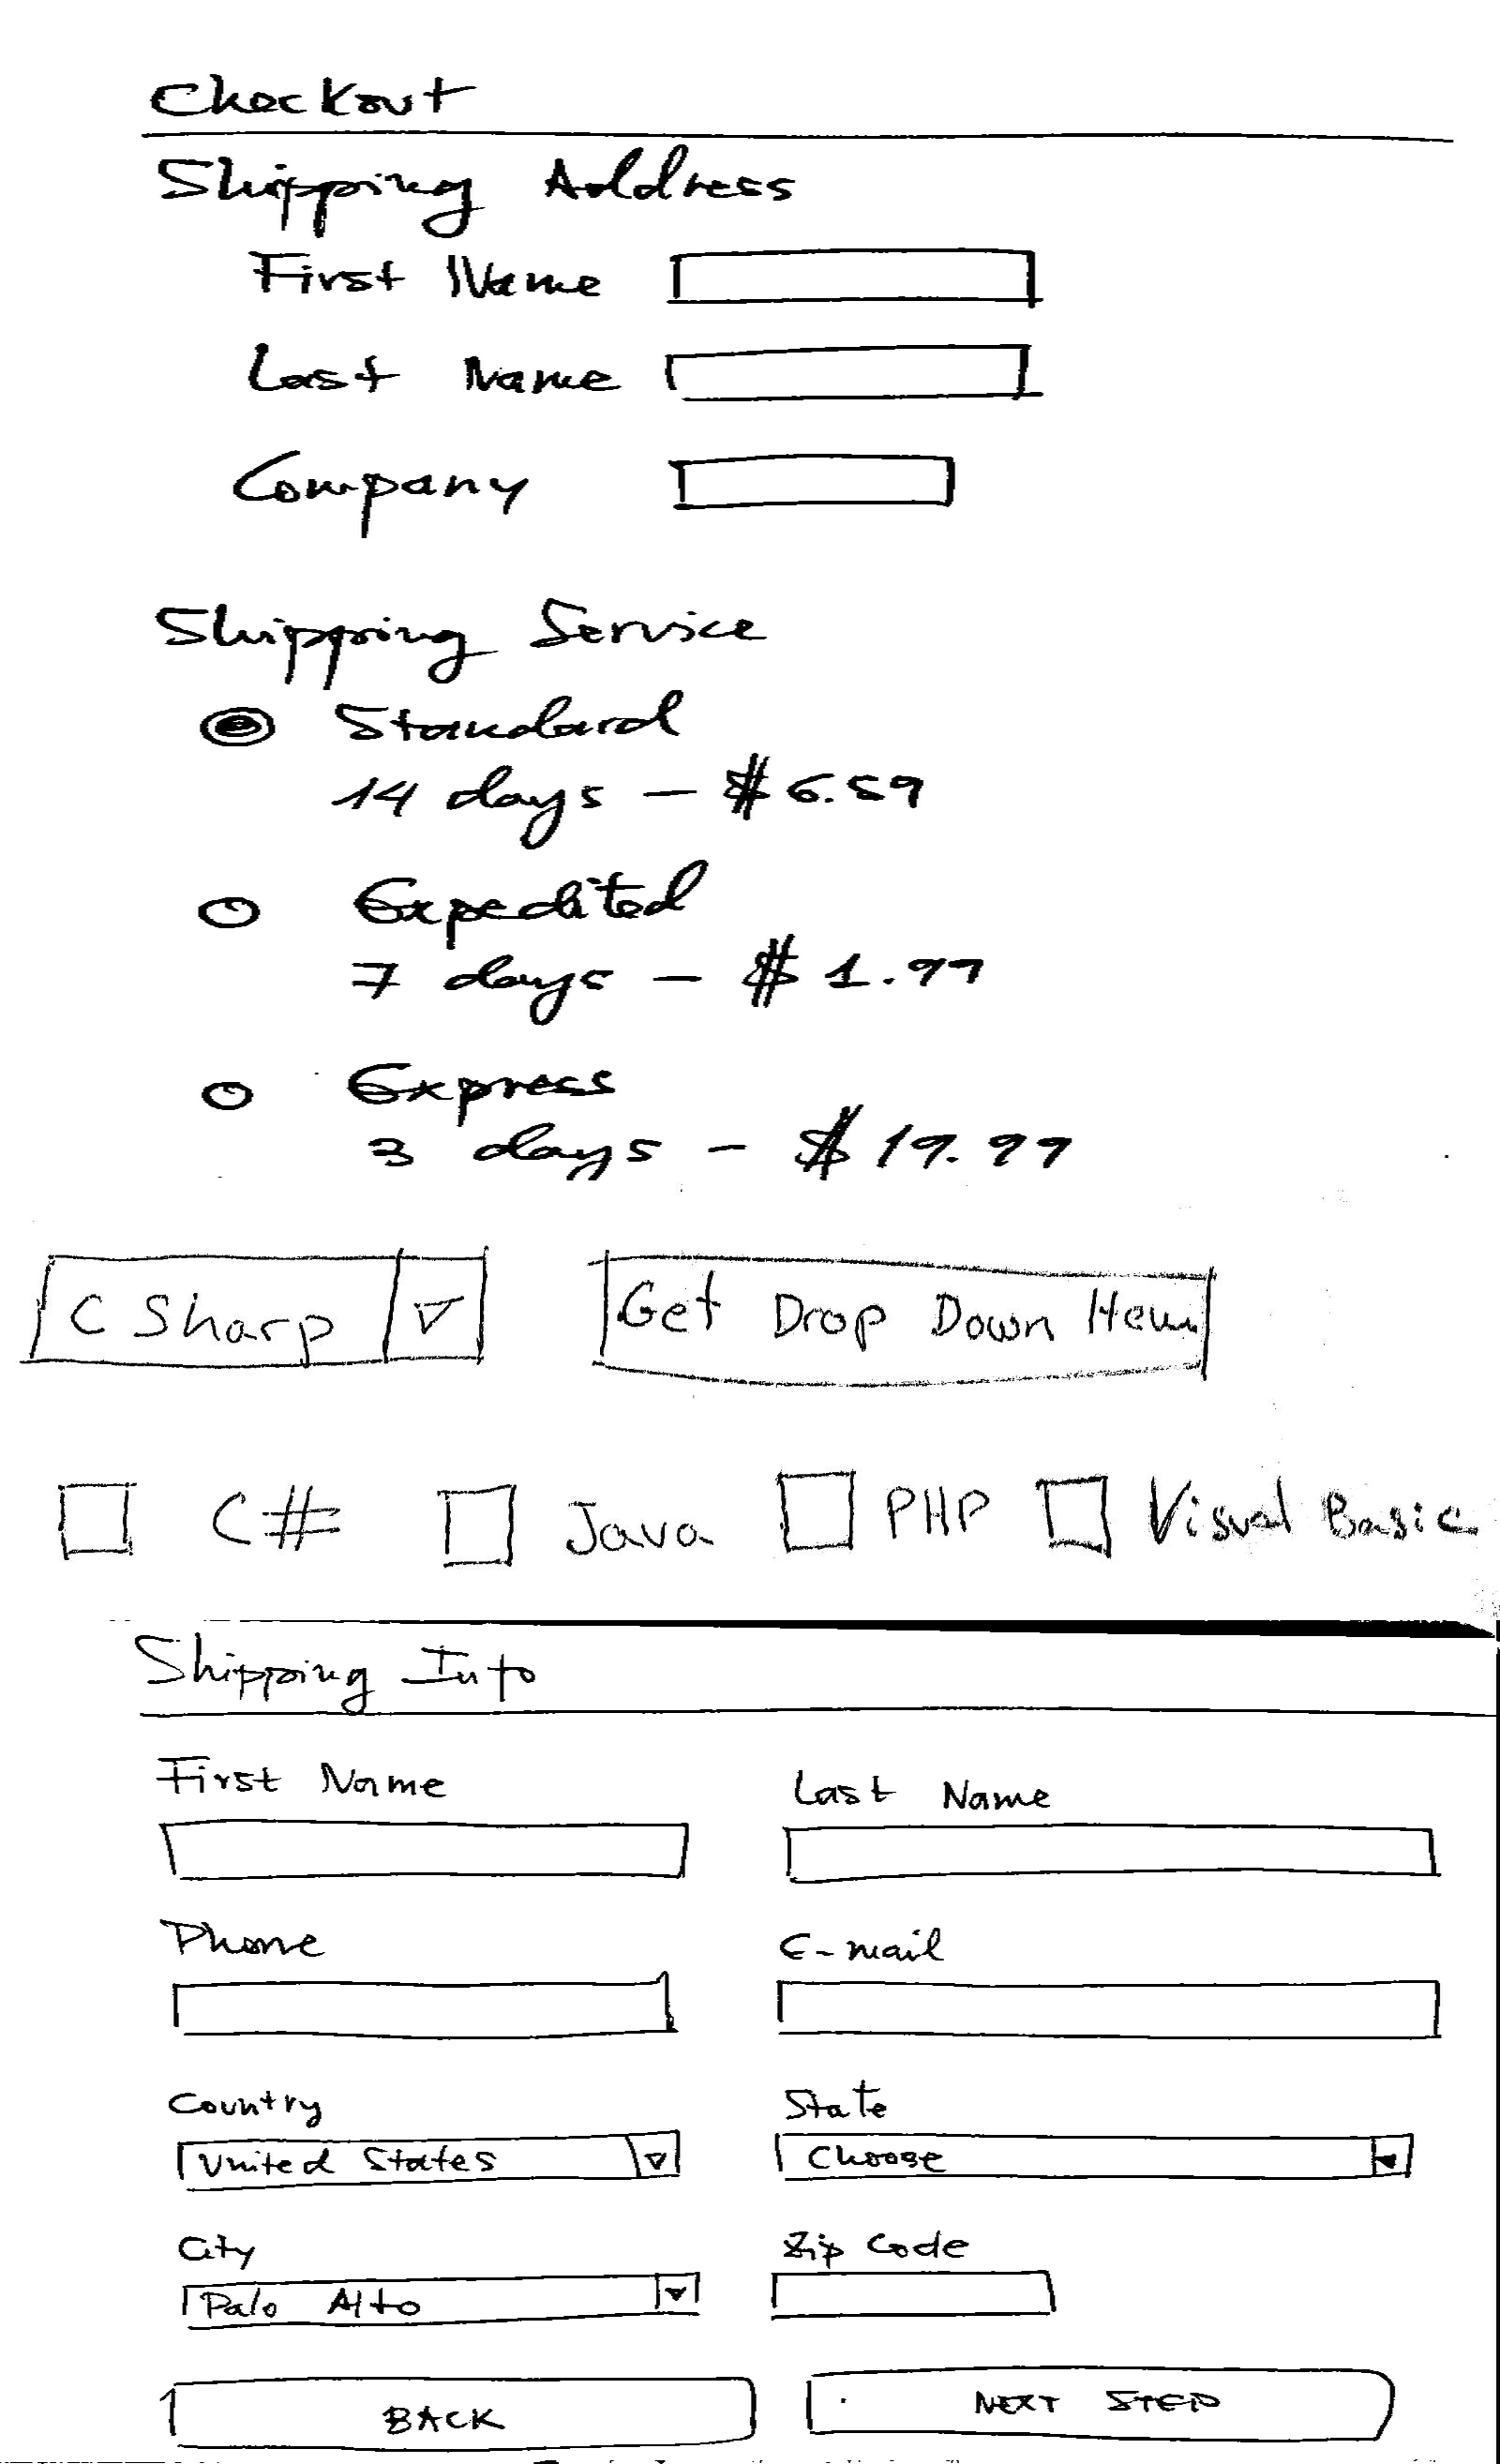 Checkout
Shipping Address
First Name
Last Name
Company
Shipping Service
Standard
14 days - $6.59
Expedited
7 days - $1.99
Express
3 days - $19.99
C Sharp
Get Drop Down Item
C# Java PHP Visual Basic
Shipping Info
First Name Last Name
Phone E-mail
Country State
United States Choose
City Zip Code
Palo Alto
BACK NEXT STEP